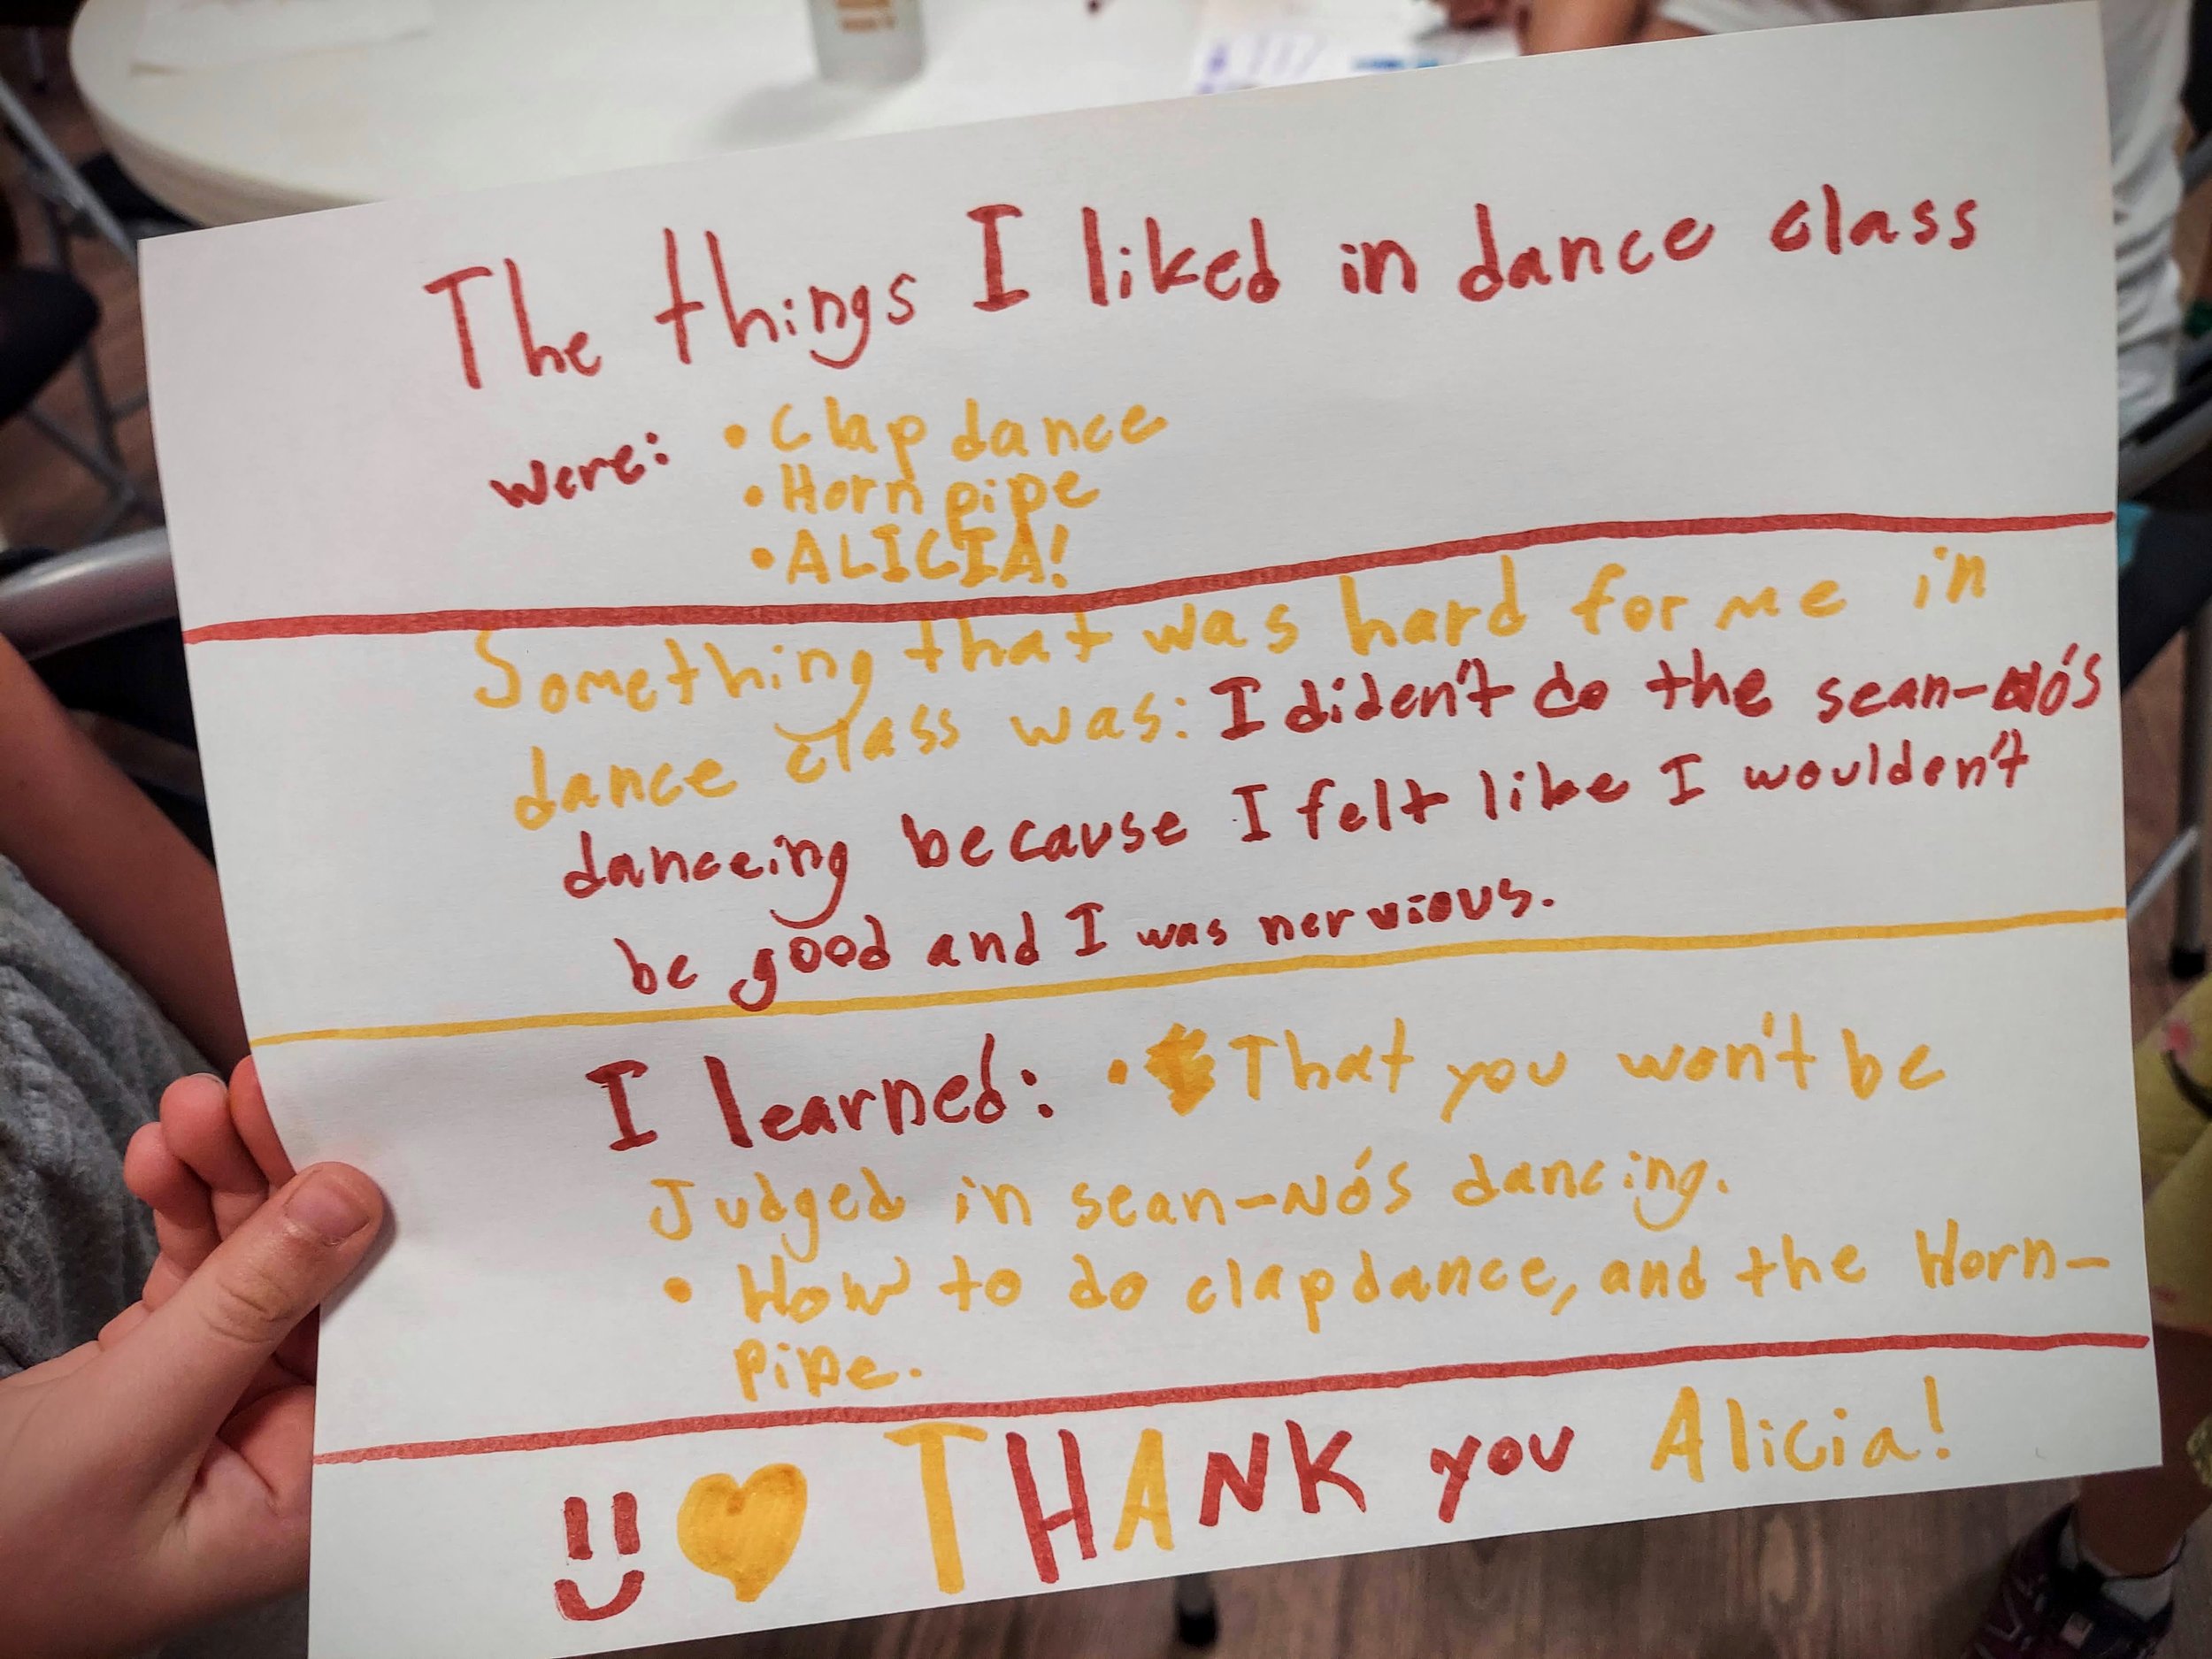 The things I liked in dance class
were: • Clap dance
• Horn pipe
• ALICIA!
Something that was hard for me in
dance class was: I diden't do the sean-Nós
danceing because I felt like I woulden't
be good and I was nervious.
I learned: • That you won't be
Judged in sean-Nós dancing.
• How to do clapdance, and the Horn-
pipe.
THANK you Alicia!